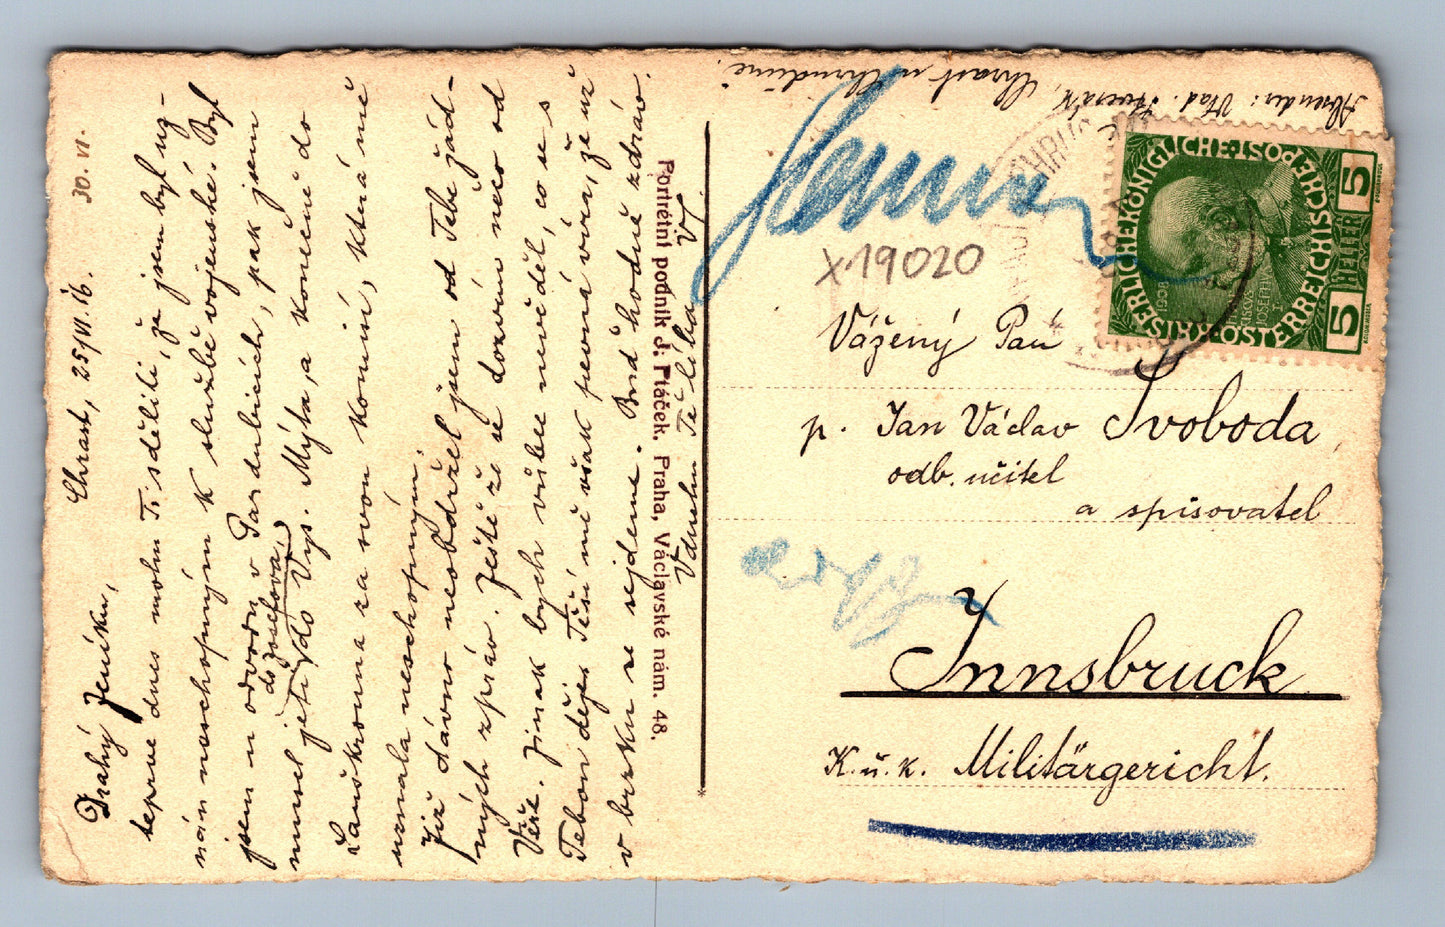 30. VI.
Chrast, 25/VI. 16.
Drahý Jeníku,
teprve dnes mohu Ti sděliti, že jsem byl uz-
nán neschopným k službě vojenské. Byl
jsem u odvodu v Pardubicích, pak jsem
do Josefova,
musel jeti do Vys. Mýta, a konečně do
Lanškrouna za svou komisí, která mě
uznala neschopným.
Již dávno neobdržel jsem od Tebe žád-
ných zpráv. Ještě že se dozvím něco od
Věře. Jinak bych vůbec nevěděl, co se s
Tebou děje. Těší mě však pevná víra, že už
v brzku se sejdeme. Buď hodně zdráv.
Vdruhu Tě líbá V.
Portrétní podnik J. Ptáček, Praha, Václavské nám. 48.
Absender: Vlad. Chrast u Chrudimě.
X19020
KAISERLICHE KÖNIGLICHE ÖSTERREICHISCHE POST
5 HELLER 5
1908
Vážený Pan
p. Jan Václav Svoboda
odb. učitel
a spisovatel
Innsbruck
K. u. k. Militärgericht.